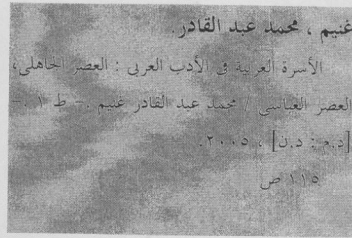 غنيم ، محمد عبد القادر.
الأسرة العربية فى الأدب العربى : العصر الجاهلى،
العصر العباسى / محمد عبد القادر غنيم .- ط ١ .-
[د.م : د.ن] ، ٢٠٠٥.
١١٥ ص